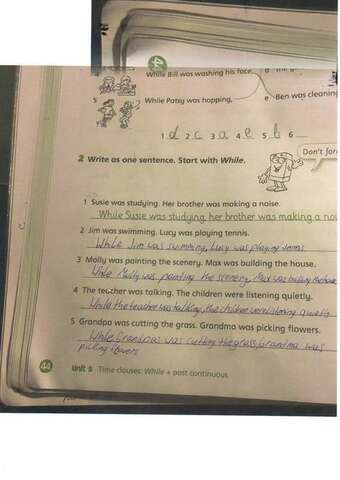 4 While Bill was washing his face,
5 While Patsy was hopping, e Ben was cleaning
1 d 2 c 3 a 4 e 5 b 6
2 Write as one sentence. Start with While.
Don't for
1 Susie was studying. Her brother was making a noise.
While Susie was studying, her brother was making a noi
2 Jim was swimming. Lucy was playing tennis.
While Jim was swimming, Lucy was playing tennis
3 Molly was painting the scenery. Max was building the house.
While Molly was painting the scenery, Max was
4 The teacher was talking. The children were listening quietly.
While the teacher was talking, the children were listening quietly
5 Grandpa was cutting the grass. Grandma was picking flowers.
While Grandpas was cutting the grass, grandma was
picking flowers
44 Unit 5 Time clauses: While + past continuous